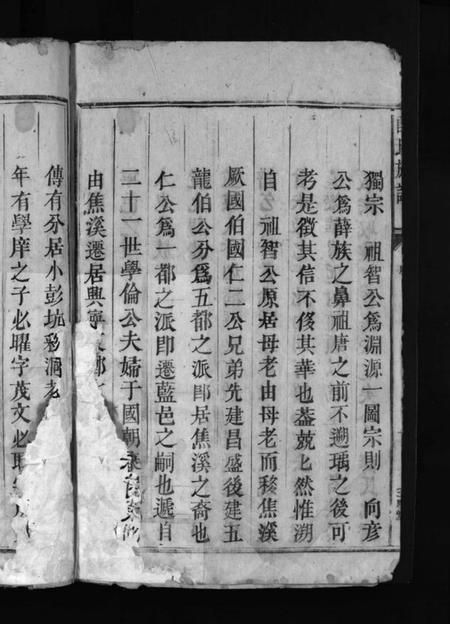 獨宗 祖智公爲淵源一圖宗則 向彦
公爲薛族之鼻祖唐之前不遡瑀之後可
考是徵其信不侈其華也益兢兢然惟溯
自 祖智公原居母老由母老而移焦溪
厥國伯國仁二公兄弟先建昌盛後建五
龍伯公分爲五都之派即居焦溪之裔也
仁公爲一都之派即遷藍邑之嗣也遞自
二十一世學倫公夫婦于國朝
由焦溪遷居興寧
傳有分居小彭坑彩洞老
年有學庠之子必耀字茂文必